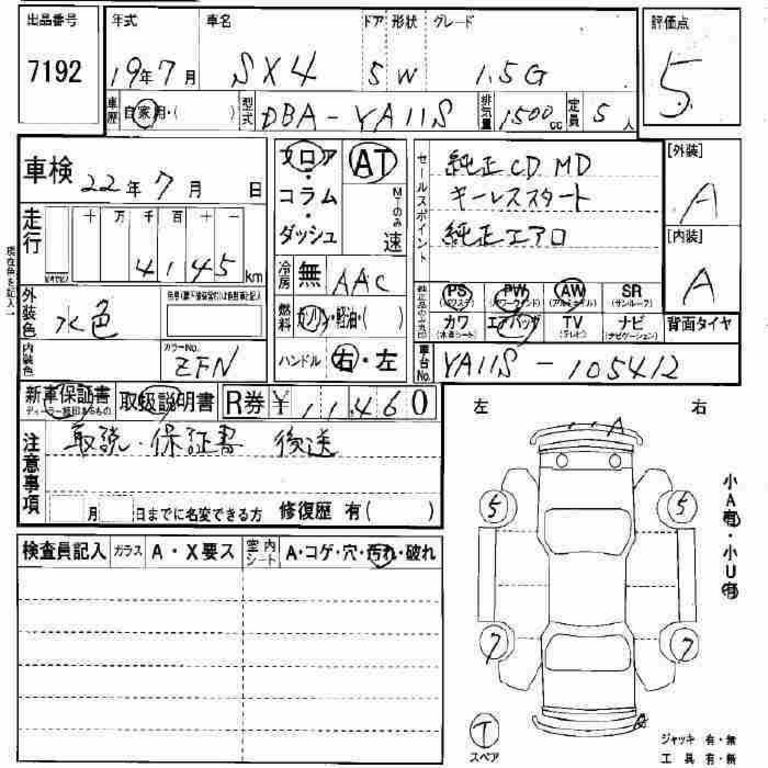 出品番号 年式 車名 ドア 形状 グレード 評価点
7192 19年7月 SX4 5 W 1.5G 5
車歴 自家用・( ) 型式 DBA-YA11S 排気量 1500cc 定員 5人
車検 22年7月 日 フロア・コラム・ダッシュ AT MTのみ 速
セールスポイント 純正CD MD
キーレススタート
純正エアロ
[外装] A
[内装] A
走行 十万千百十一
4145km
冷房 無 AAC
燃料 ガソリン・軽油・( )
ハンドル 右・左
外装色 水色
内装色 カラーNo. ZFN
PS (パワステ) PW (パワーウインド) AW (アルミホイル) SR (サンルーフ)
カワ (本革シート) エアバッグ TV (テレビ) ナビ (ナビゲーション) 背面タイヤ
車台No. YA11S-105412
新車保証書 取扱説明書 R券 ¥11,460
注意事項 取説・保証書 後送
月 日までに名変できる方 修復歴 有( )
検査員記入 ガラス A・X要ス 室内シート A・コゲ・穴・汚れ・破れ
左 右
A
5 5
7 7
小A有・小U有
T
スペア
ジャッキ 有・無
工具 有・無
現在色を記入